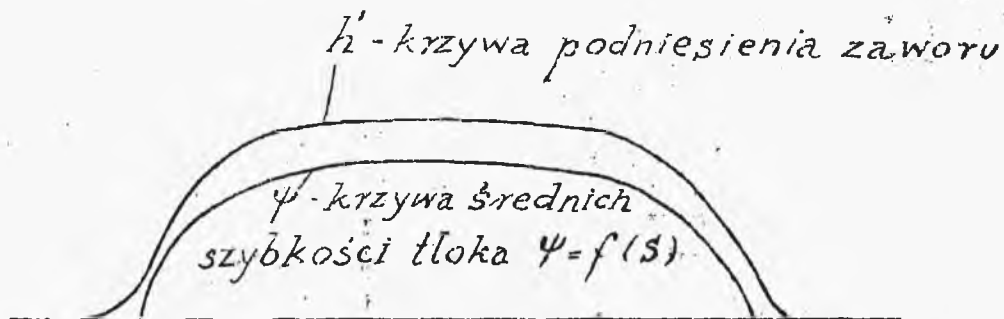 h' - krzywa podniesienia zaworu
ψ' - krzywa średnich
szybkości tłoka ψ = f(s)